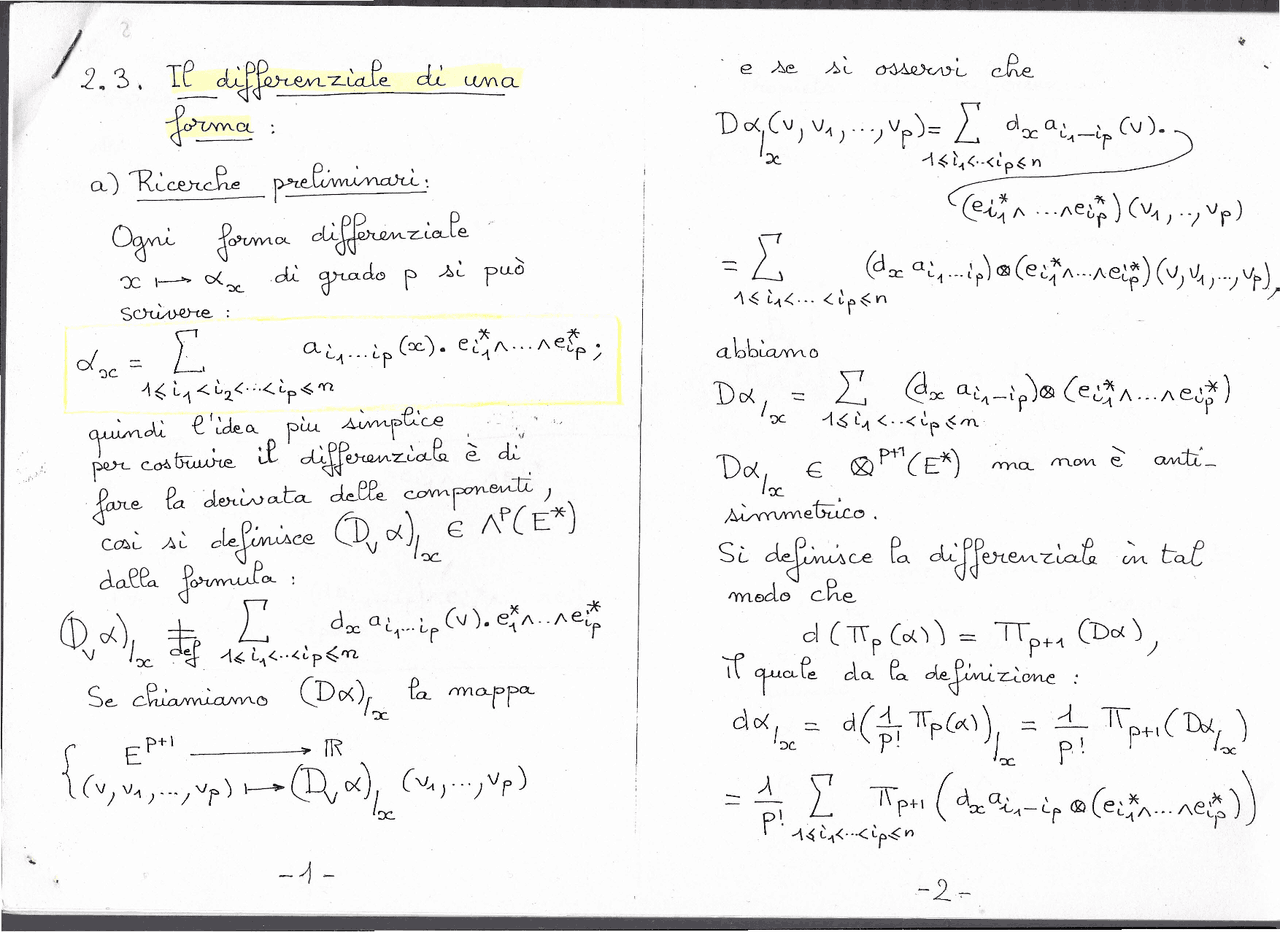 2.3. Il differenziale di una
forma :
a) Ricerche preliminari:
Ogni forma differenziale
x ⟼ α_x di grado p si può
scrivere :
α_x = ∑_{1≤i_1<i_2<...<i_p≤n} a_{i_1...i_p}(x). e_{i_1}^*∧...∧e_{i_p}^* ;
quindi l'idea piu simplice
per costruire il differenziale è di
fare la derivata delle componenti,
cosi si definisce (D_v α)_{/x} ∈ Λ^p(E^*)
dalla formula :
(D_v α)_{/x} =_{def} ∑_{1≤i_1<...<i_p≤n} d_x a_{i_1...i_p}(v). e_1^*∧...∧e_{i_p}^*
Se chiamiamo (Dα)_{/x} la mappa
{ E^{p+1} ⟶ ℝ
(v, v_1, ..., v_p) ⟼ (D_v α)_{/x} (v_1, ..., v_p)
-1-
e se si osservi che
Dα_{/x}(v, v_1, ..., v_p) = ∑_{1≤i_1<...<i_p≤n} d_x a_{i_1—i_p}(v).
(e_{i_1}^*∧...∧e_{i_p}^*)(v_1, .., v_p)
= ∑_{1≤i_1<...<i_p≤n} (d_x a_{i_1...i_p})⊗(e_{i_1}^*∧...∧e_{i_p}^*)(v, v_1, ..., v_p),
abbiamo
Dα_{/x} = ∑_{1≤i_1<...<i_p≤n} (d_x a_{i_1—i_p})⊗(e_{i_1}^*∧...∧e_{i_p}^*)
Dα_{/x} ∈ ⊗^{p+1}(E^*) ma non è anti-
simmetrico.
Si definisce la differenziale in tal
modo che
d(π_p(α)) = π_{p+1}(Dα),
il quale da la definizione :
dα_{/x} = d(1/p! π_p(α))_{/x} = 1/p! π_{p+1}(Dα_{/x})
= 1/p! ∑_{1≤i_1<...<i_p≤n} π_{p+1}(d_x a_{i_1—i_p}⊗(e_{i_1}^*∧...∧e_{i_p}^*))
-2-